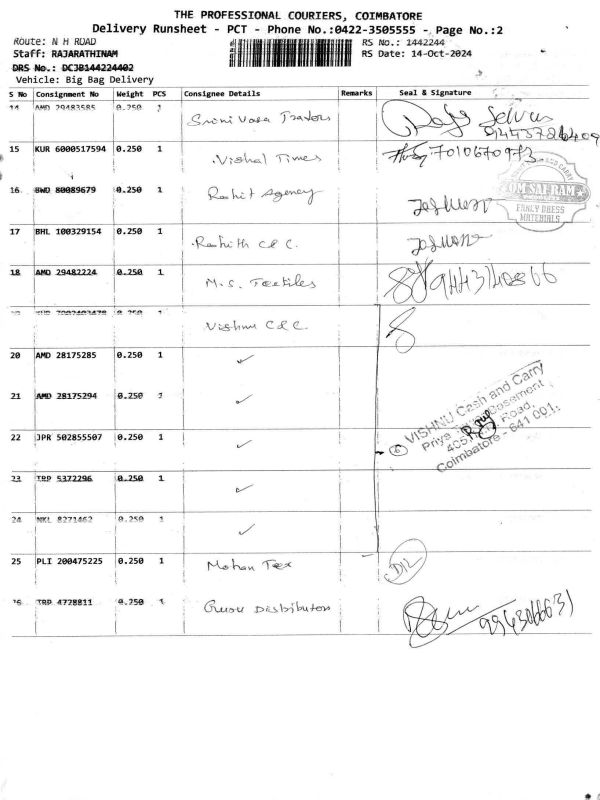 THE PROFESSIONAL COURIERS, COIMBATORE
Delivery Runsheet - PCT - Phone No.:0422-3505555 - Page No.:2
Route: N H ROAD RS No.: 1442244
Staff: RAJARATHINAM RS Date: 14-Oct-2024
DRS No.: DCJB144224402
Vehicle: Big Bag Delivery
S No Consignment No Weight PCS Consignee Details Remarks Seal & Signature
14 AMD 29483585 0.250 1 Srinivasa Traders
15 KUR 6000517594 0.250 1 Vishal Times 7010670973
16 BWD 80089679 0.250 1 Rohit Agency
OM SAI RAM
FANCY DRESS
MATERIALS
17 BHL 100329154 0.250 1 Rohith C & C.
18 AMD 29482224 0.250 1 M.S. Textiles
0.250 Vishnu C & C.
20 AMD 28175285 0.250 1 ✓
21 AMD 28175294 0.250 1 ✓
VISHNU Cash and Carry
Priya Basement
405, Road,
Coimbatore - 641 001.
6
22 JPR 502855507 0.250 1 ✓
23 TRP 5372296 0.250 1 ✓
24 NKL 8271462 0.250 1 ✓
25 PLI 200475225 0.250 1 Mohan Tex
26 TRP 4728811 0.250 1 Distributors